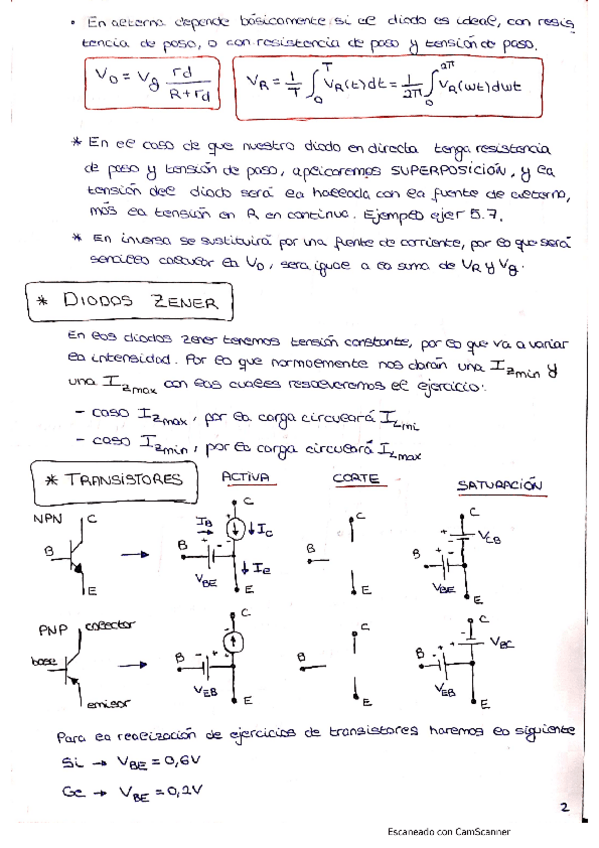 • En alterna depende básicamente si el diodo es ideal, con resis
tencia de paso, o con resistencia de paso y tensión de paso.
Vo = Vg rd / (R+rd)    VR = 1/T ∫₀ᵀ VR(t)dt = 1/2π ∫₀²π VR(wt)dwt
* En el caso de que nuestro diodo en directa tenga resistencia
de paso y tensión de paso, aplicaremos SUPERPOSICIÓN, y la
tensión del diodo será la hallada con la fuente de alterno,
más la tensión en R en continua. Ejemplo ejer 5.7.
* En inversa se sustituirá por una fuente de corriente, por lo que será
sencillo calcular la Vo, sera igual a la suma de VR y Vg.
* DIODOS ZENER
En los diodos zener tenemos tensión constante, por lo que va a variar
la intensidad. Por lo que normalmente nos darán una Izmin y
una Izmax con las cuales resolveremos el ejercicio:
- caso Izmax, por la carga circulará ILmi
- caso Izmin, por la carga circulará ILmax
* TRANSISTORES ACTIVA CORTE SATURACIÓN
NPN C B E
C IB + - Ic B + - VBE Ie E
C B E
C + - VCB B + - VBE E
PNP colector base emisor
C B - + VEB E
C B E
C - + VBC B - + VEB E
Para la realización de ejercicios de transistores haremos lo siguiente
Si → VBE = 0,6V
Ge → VBE = 0,2V
2
Escaneado con CamScanner